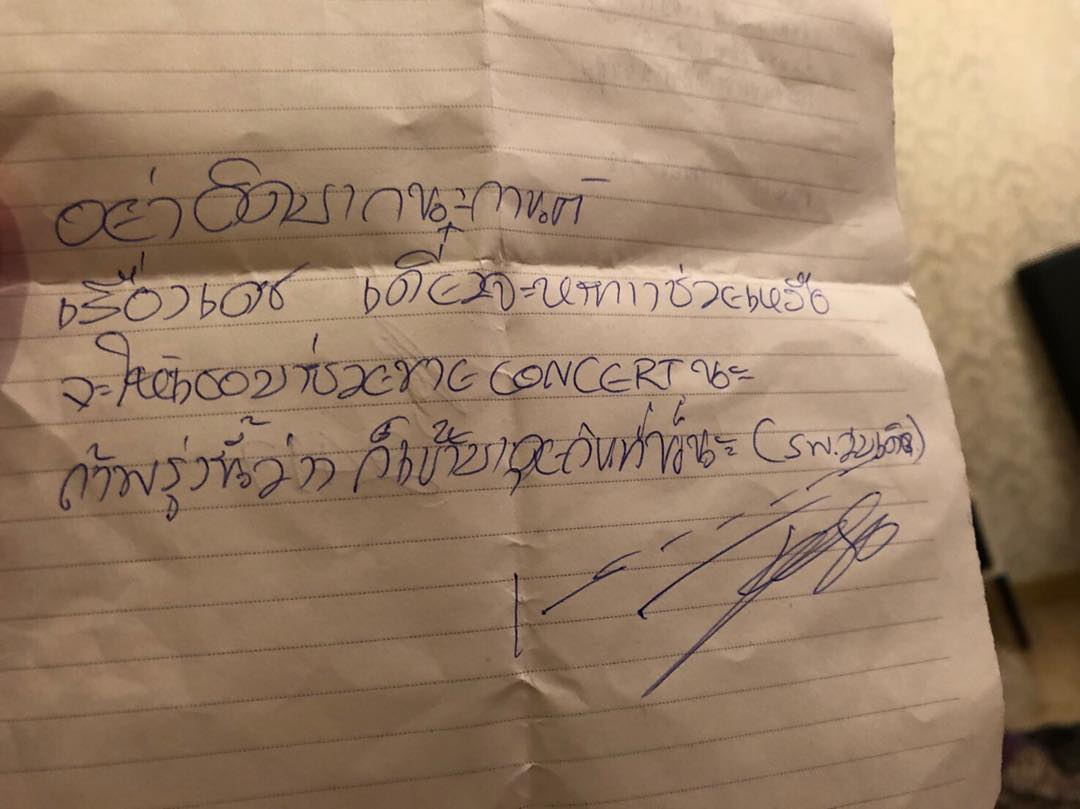 อย่าคิดมากนะกานต์
เรื่องเดช เดี๋ยวจะหาทางช่วยเหลือ
จะให้ตอบช่วยงาน CONCERT นะ
ถ้าพรุ่งนี้ว่าง ก็เข้ามาคุยกันที่ นะ (รพ.